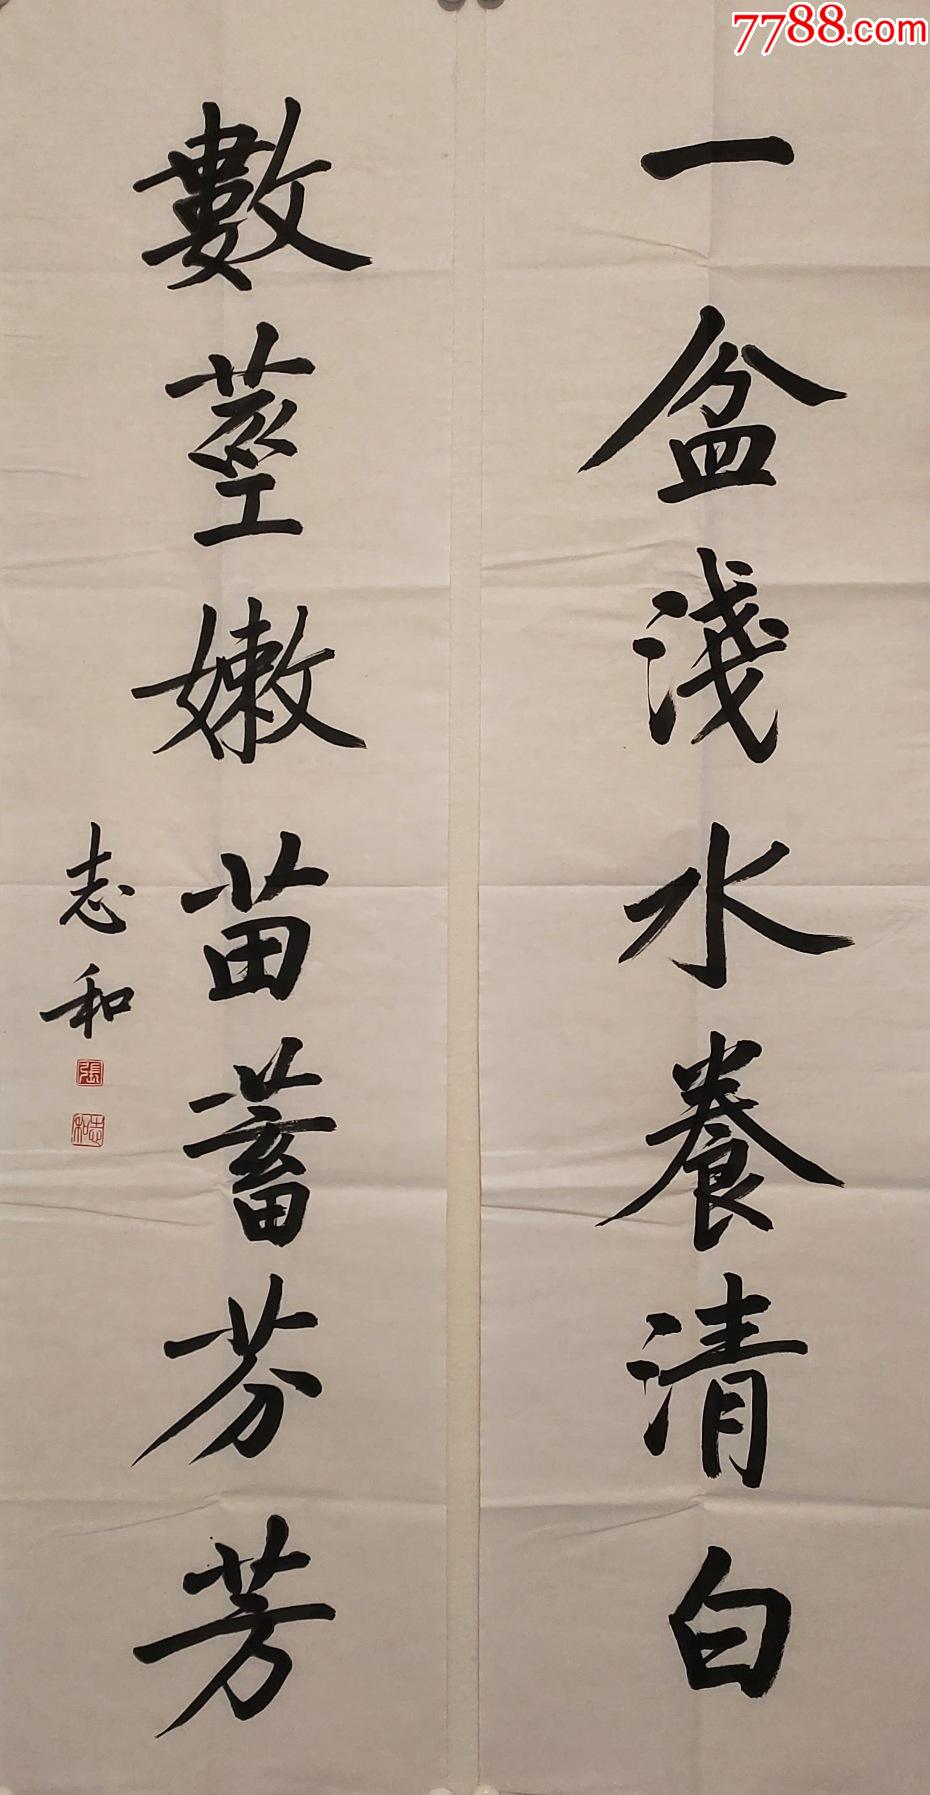 7788.com
一盆淺水養清白
數莖嫩苗蓄芬芳
志和
張
志和